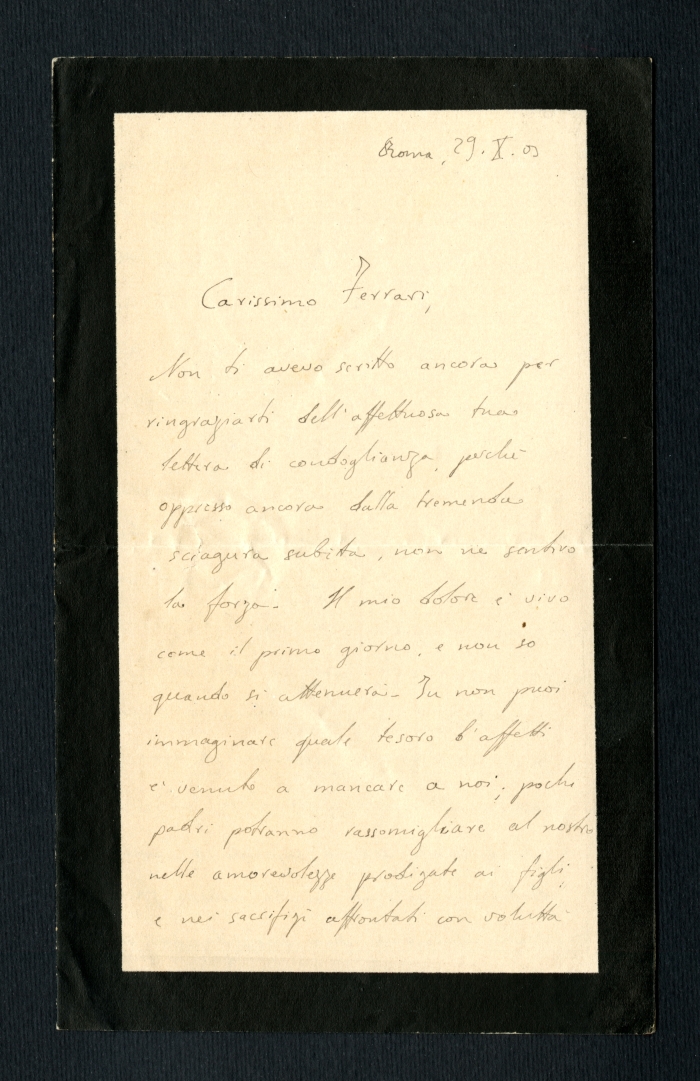 Roma, 29. X. 03
Carissimo Ferrari,
Non ti avevo scritto ancora per
ringraziarti dell'affettuosa tua
lettera di condoglianza, perchè
oppresso ancora dalla tremenda
sciagura subìta, non ne sentivo
la forza. Il mio dolore è vivo
come il primo giorno, e non so
quando si attenuerà. Tu non puoi
immaginare quale tesoro d'affetti
è venuto a mancare a noi; pochi
padri potranno rassomigliare al nostro
nelle amorevolezze prodigate ai figli,
e nei sacrifizi affrontati con voluttà